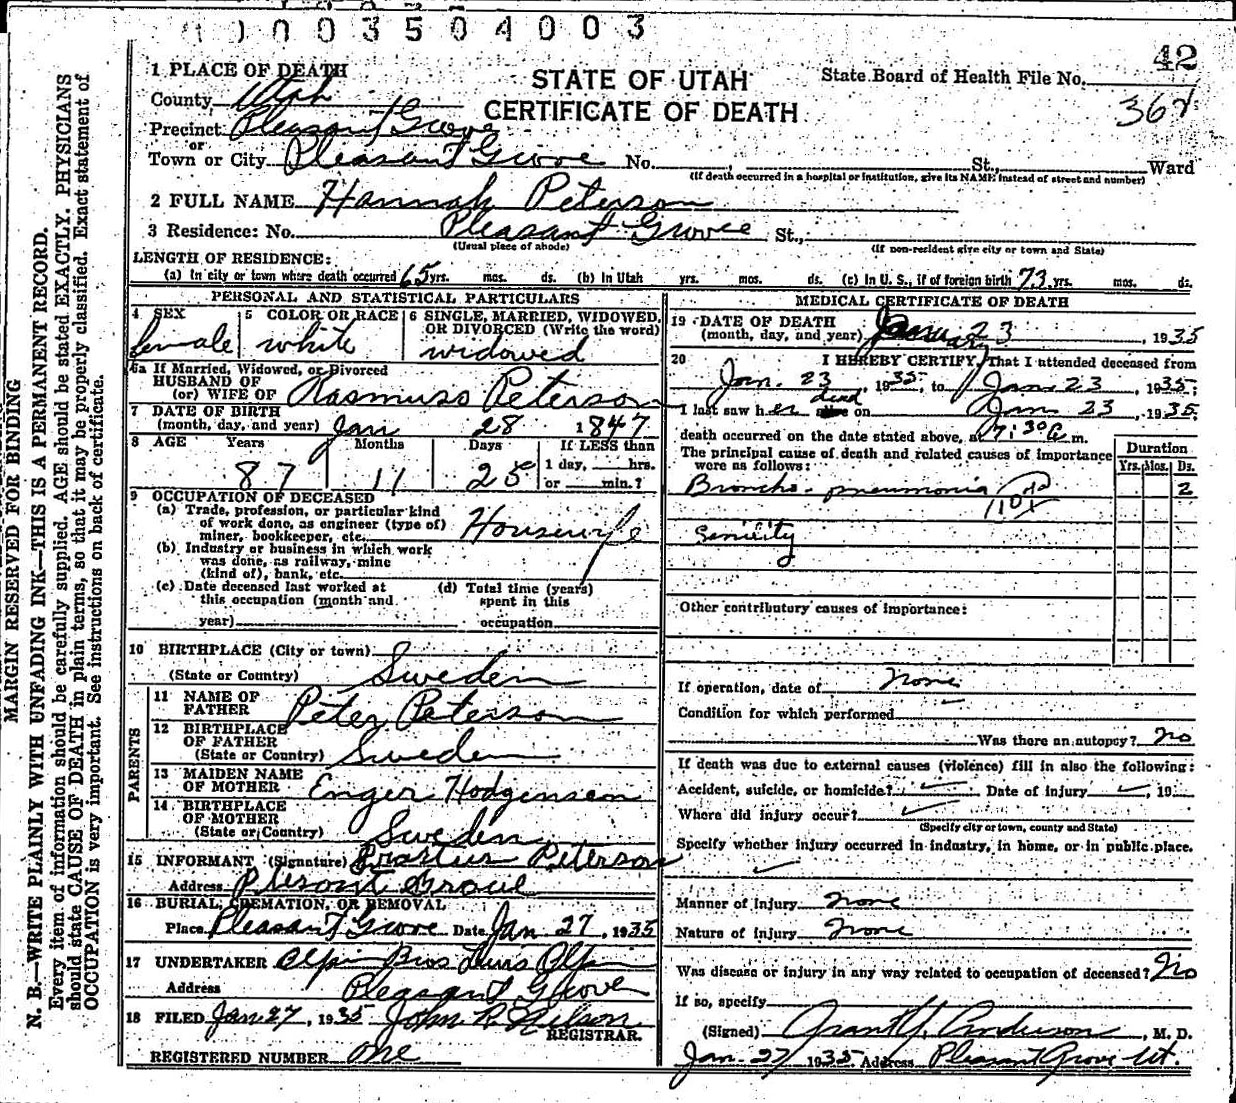 0 0 0 3 5 0 4 0 0 3
42
STATE OF UTAH
CERTIFICATE OF DEATH
State Board of Health File No.
367
MARGIN RESERVED FOR BINDING
N. B.—WRITE PLAINLY WITH UNFADING INK—THIS IS A PERMANENT RECORD.
Every item of information should be carefully supplied. AGE should be stated EXACTLY. PHYSICIANS
should state CAUSE OF DEATH in plain terms, so that it may be properly classified. Exact statement of
OCCUPATION is very important. See instructions on back of certificate.
1 PLACE OF DEATH
County Utah
Precinct Pleasant Grove
or
Town or City Pleasant Grove No. , St., Ward
(If death occurred in a hospital or institution, give its NAME instead of street and number)
2 FULL NAME Hannah Peterson
3 Residence: No. Pleasant Grove St.,
(Usual place of abode) (If non-resident give city or town and State)
LENGTH OF RESIDENCE:
(a) In city or town where death occurred 65 yrs. mos. ds. (b) In Utah yrs. mos. ds. (c) In U. S., if of foreign birth 73 yrs. mos. ds.
PERSONAL AND STATISTICAL PARTICULARS
4 SEX 5 COLOR OR RACE 6 SINGLE, MARRIED, WIDOWED, OR DIVORCED (Write the word)
female white widowed
6a If Married, Widowed, or Divorced
HUSBAND OF
(or) WIFE OF Rasmuss Peterson
7 DATE OF BIRTH
(month, day, and year) Jan 28 1847
8 AGE Years Months Days If LESS than
87 11 25 1 day, hrs.
or min.?
9 OCCUPATION OF DECEASED
(a) Trade, profession, or particular kind
of work done, as engineer (type of)
miner, bookkeeper, etc. Housewife
(b) Industry or business in which work
was done, as railway, mine
(kind of), bank, etc.
(c) Date deceased last worked at
this occupation (month and
year)
(d) Total time (years)
spent in this
occupation
10 BIRTHPLACE (City or town)
(State or Country) Sweden
PARENTS
11 NAME OF
FATHER Peter Peterson
12 BIRTHPLACE
OF FATHER
(State or Country) Sweden
13 MAIDEN NAME
OF MOTHER Enger Hodgensen
14 BIRTHPLACE
OF MOTHER
(State or Country) Sweden
15 INFORMANT (Signature) Erastus Peterson
Address Plesant Grove
16 BURIAL, CREMATION, OR REMOVAL
Place Pleasant Grove Date Jan 27, 1935
17 UNDERTAKER Olpin Bros Olpin
Address Pleasant Grove
18 FILED Jan 27, 1935 John R. Nilson
REGISTRAR.
REGISTERED NUMBER one
MEDICAL CERTIFICATE OF DEATH
19 DATE OF DEATH
(month, day, and year) January 23, 1935
20 I HEREBY CERTIFY, That I attended deceased from
Jan. 23, 1935, to Jan 23, 1935;
dead
I last saw her alive on Jan 23, 1935.
death occurred on the date stated above, at 7:30 a m.
The principal cause of death and related causes of importance
were as follows:
Duration
Yrs. Mos. Ds.
Broncho-pneumonia 2
Senility
Other contributory causes of importance:
If operation, date of none
Condition for which performed
Was there an autopsy? no
If death was due to external causes (violence) fill in also the following:
Accident, suicide, or homicide? Date of injury , 19
Where did injury occur?
(Specify city or town, county and State)
Specify whether injury occurred in industry, in home, or in public place.
Manner of Injury none
Nature of Injury none
Was disease or injury in any way related to occupation of deceased? no
If so, specify
(Signed) Grant Y. Anderson, M. D.
Jan. 27 1935 Address Pleasant Grove Ut.